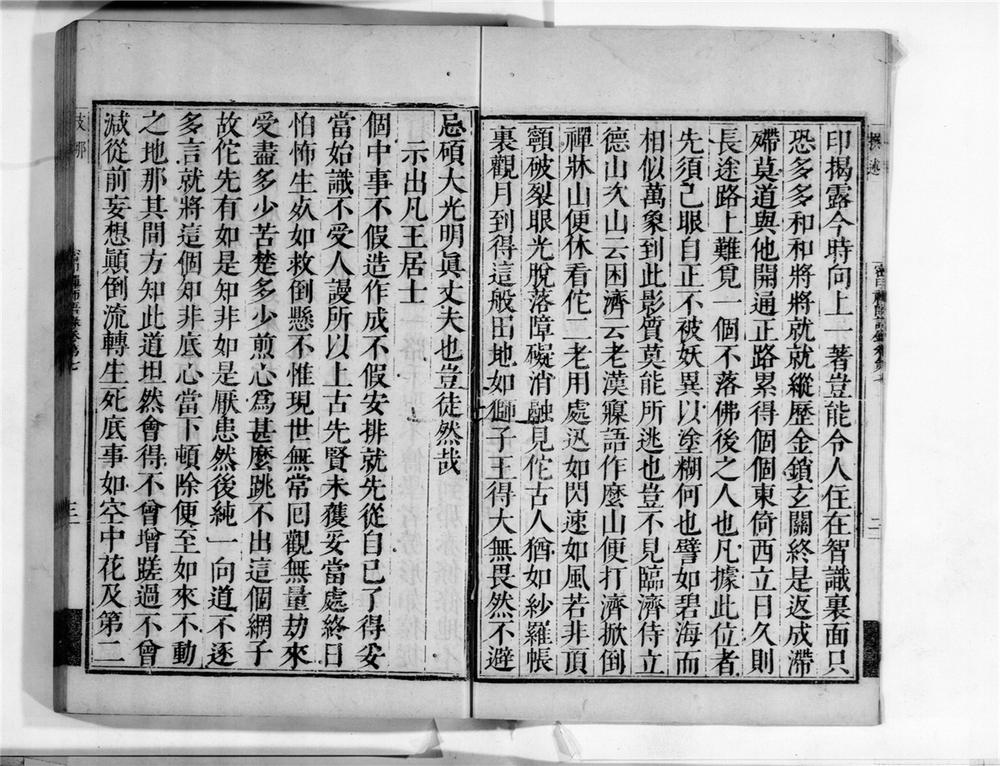 撰述
二
印揭露今時向上一著豈能令人住在智識裏面只
恐多多和和將將就就縱歷金鎖玄關終是返成滯
殢莫道與他開通正路累得個個東倚西立日久則
長途路上難覓一個不落佛後之人也凡據此位者
先須己眼自正不被妖異以塗糊何也譬如碧海而
相似萬象到此影質莫能所逃也豈不見臨濟侍立
德山次山云困濟云老漢寐語作麼山便打濟掀倒
禪牀山便休看佗二老用處迅如閃速如風若非頂
顊破裂眼光脫落障礙消融見佗古人猶如紗羅帳
裏觀月到得這般田地如獅子王得大無畏然不避
忌碩大光明眞丈夫也豈徒然哉
示出凡王居士
個中事不假造作成不假安排就先從自已了得妥
當始識不受人謾所以上古先賢未獲妥當處終日
怕怖生𣦸如救倒懸不惟現世無常囘觀無量劫來
受盡多少苦楚多少煎心爲甚麼跳不出這個網子
故佗先有如是知非如是厭患然後純一向道不逐
多言就將這個知非底心當下頓除便至如來不動
之地那其間方知此道坦然會得不曾增蹉過不曾
減從前妄想顚倒流轉生死底事如空中花及第二
支那
三